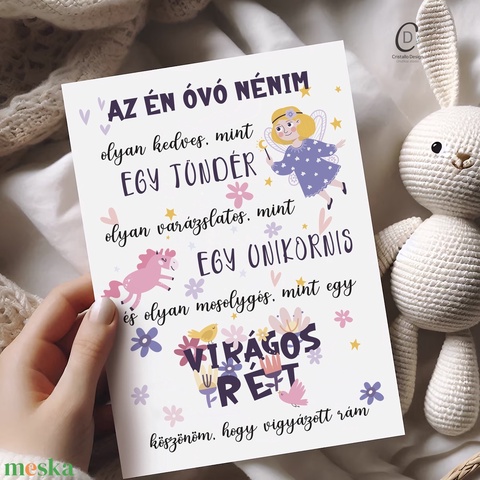 AZ ÉN ÓVÓ NÉNIM
olyan kedves, mint
EGY TÜNDÉR
olyan varázslatos, mint
EGY UNIKORNIS
és olyan mosolygós, mint egy
VIRÁGOS
RÉT
köszönöm, hogy vigyázott rám
CD
Cristallo Design
meska